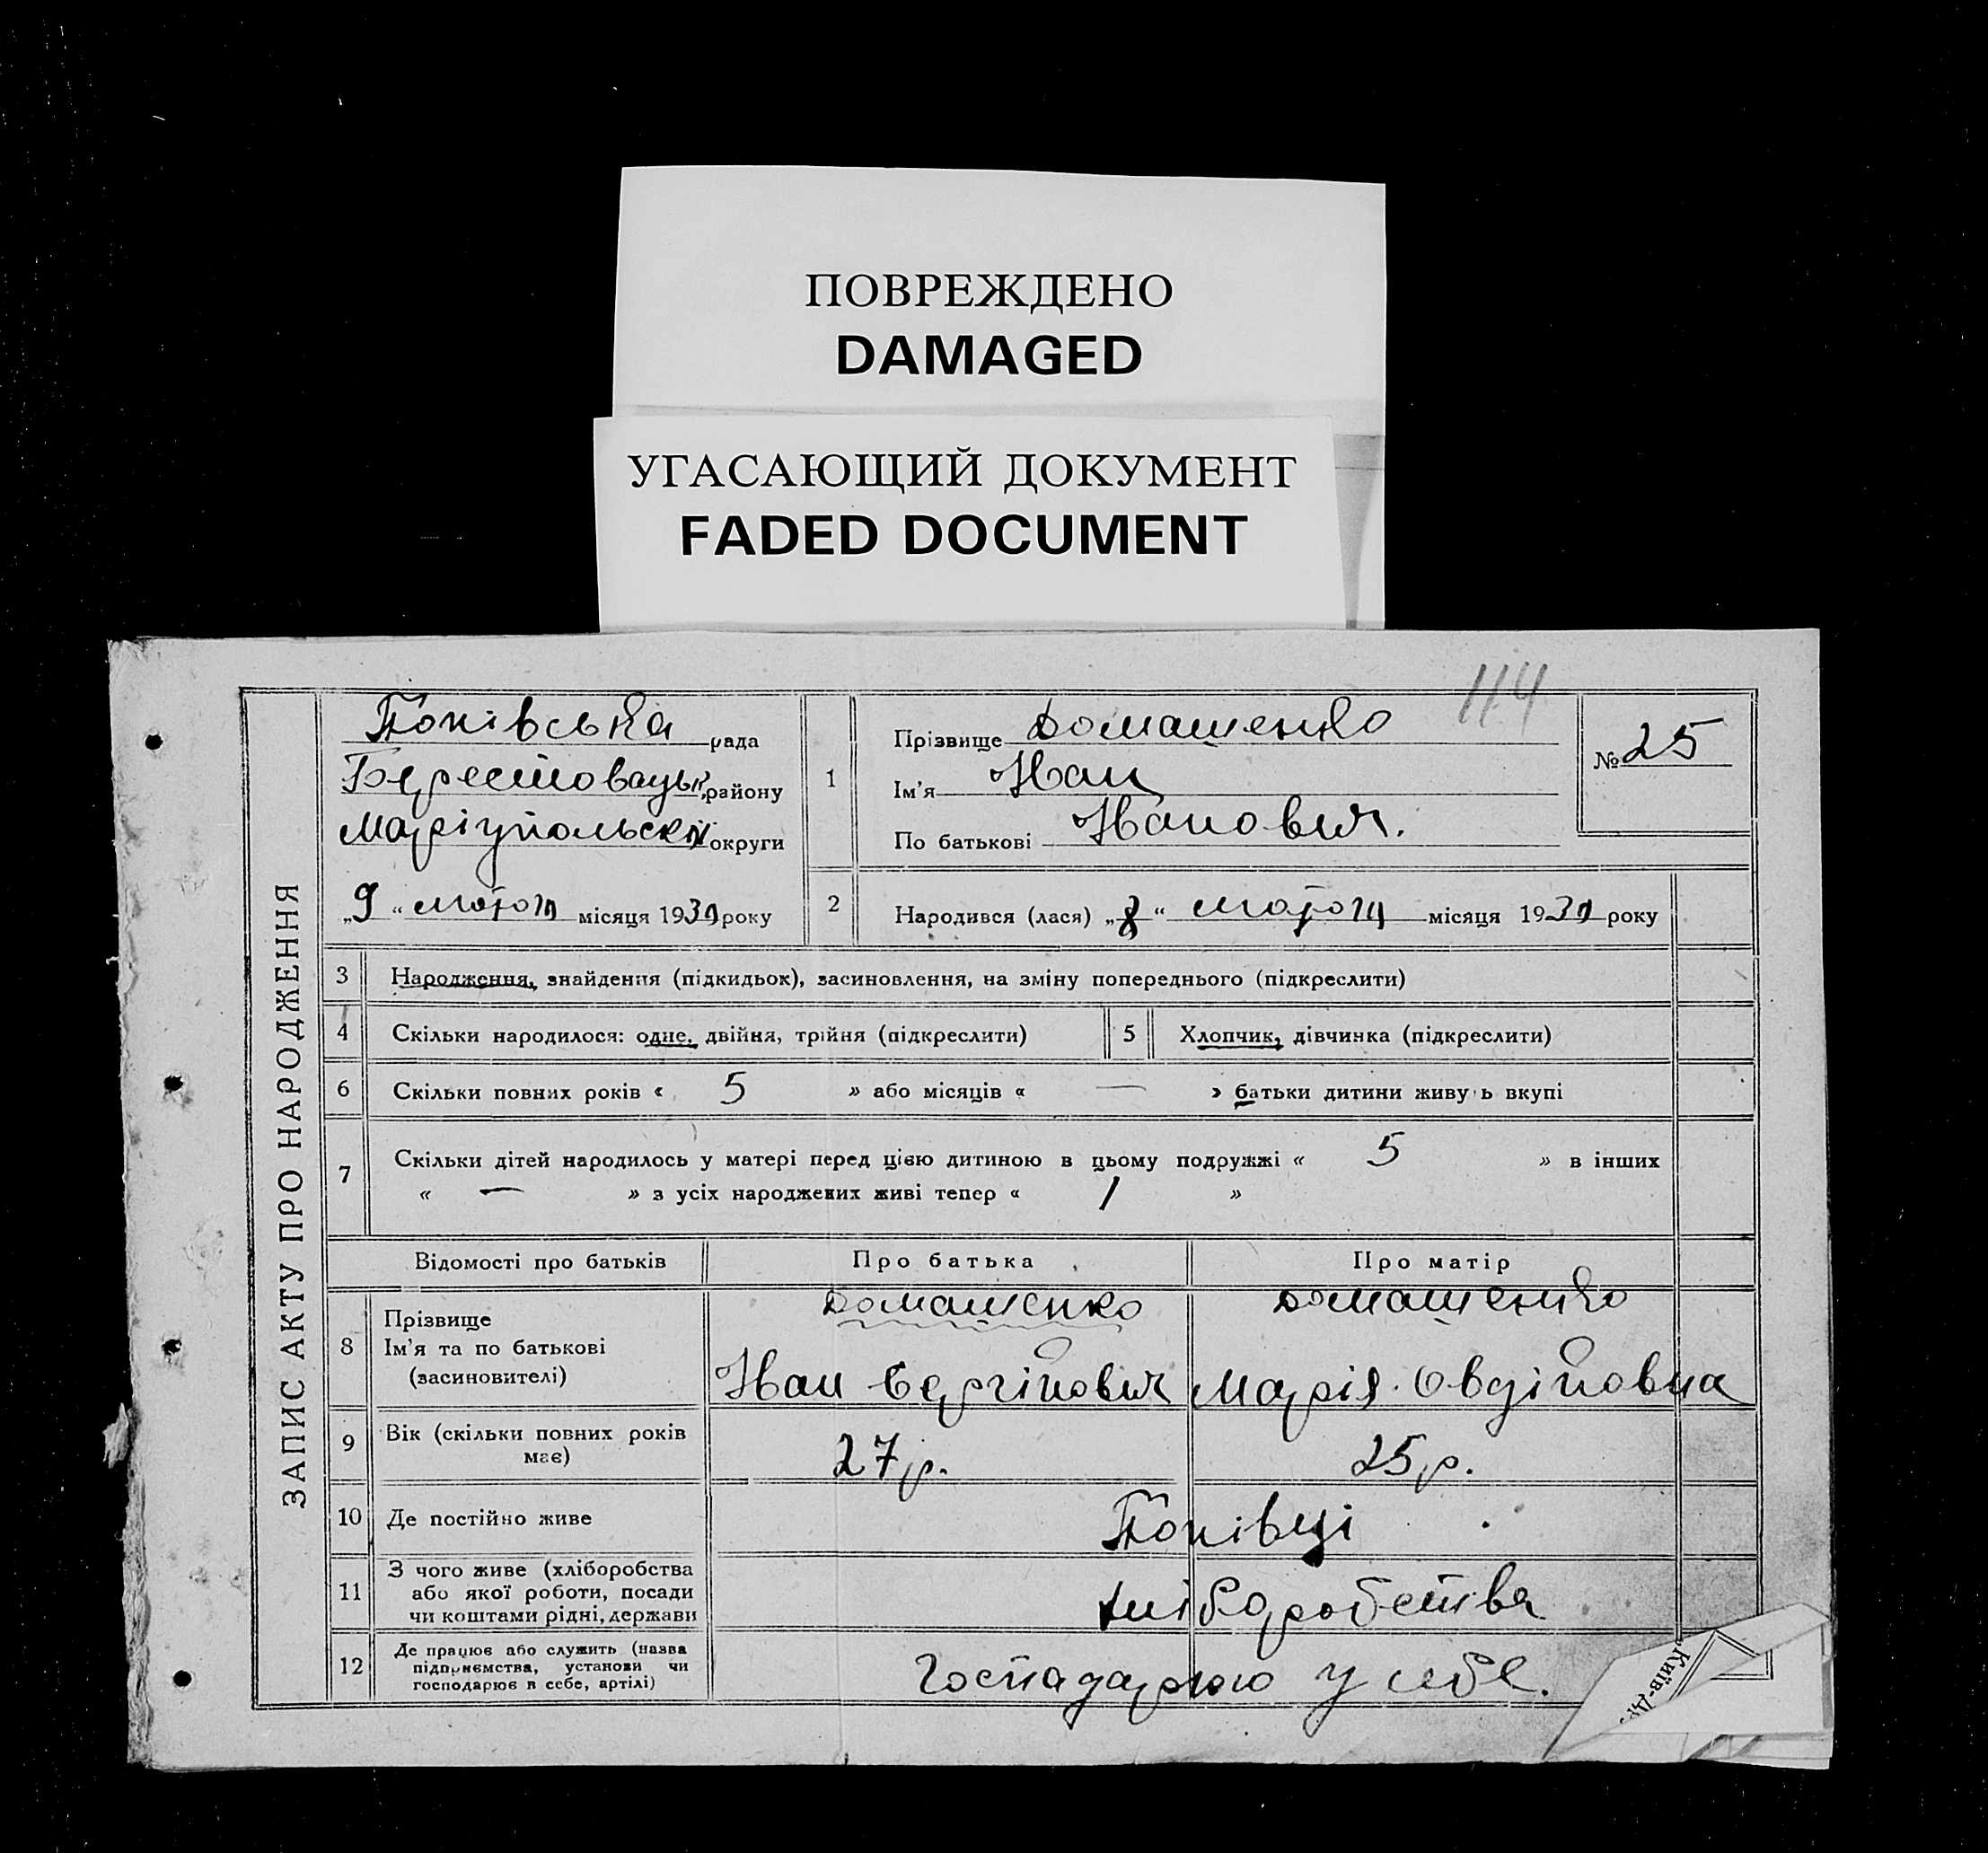 ПОВРЕЖДЕНО
DAMAGED
УГАСАЮЩИЙ ДОКУМЕНТ
FADED DOCUMENT
114
ЗАПИС АКТУ ПРО НАРОДЖЕННЯ
рада
Берестовацьк. району
Маріупольскої округи
„9“ лютого місяця 1930 року
1
Прізвище Домашенко
Ім'я Иван
По батькові Иванович.
№ 25
2 Народився (лася) „8“ лютого місяця 1930 року
3 Народження, знайдення (підкидьок), засиновлення, на зміну попереднього (підкреслити)
4 Скільки народилося: одне, двійня, трійня (підкреслити) 5 Хлопчик, дівчинка (підкреслити)
6 Скільки повних років « 5 » або місяців « — » батьки дитини живуь вкупі
7 Скільки дітей народилось у матері перед цією дитиною в цьому подружжі « 5 » в інших
« — » з усіх народжених живі тепер « 1 »
Відомості про батьків Про батька Про матір
8 Прізвище
Ім'я та по батькові
(засиновителі)
Домашенко Домашенко
Иван Сергійович Марія Овдіївна
9 Вік (скільки повних років
має)
27 р. 25 р.
10 Де постійно живе
11 З чого живе (хліборобства
або якої роботи, посади
чи коштами рідні, держави
хліборобства
12 Де працює або служить (назва
підприємства, установи чи
господарює в себе, артілі)
Господарюю у себе.
Київ-Д